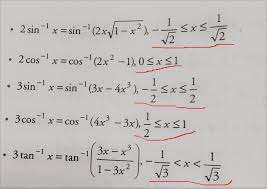 • 2 sin⁻¹ x = sin⁻¹ (2x√(1 − x²)), −1/√2 ≤ x ≤ 1/√2
• 2 cos⁻¹ x = cos⁻¹ (2x² − 1), 0 ≤ x ≤ 1
• 3 sin⁻¹ x = sin⁻¹ (3x − 4x³), −1/2 ≤ x ≤ 1/2
• 3 cos⁻¹ x = cos⁻¹ (4x³ − 3x), 1/2 ≤ x ≤ 1
• 3 tan⁻¹ x = tan⁻¹ ((3x − x³)/(1 − 3x²)), −1/√3 < x < 1/√3